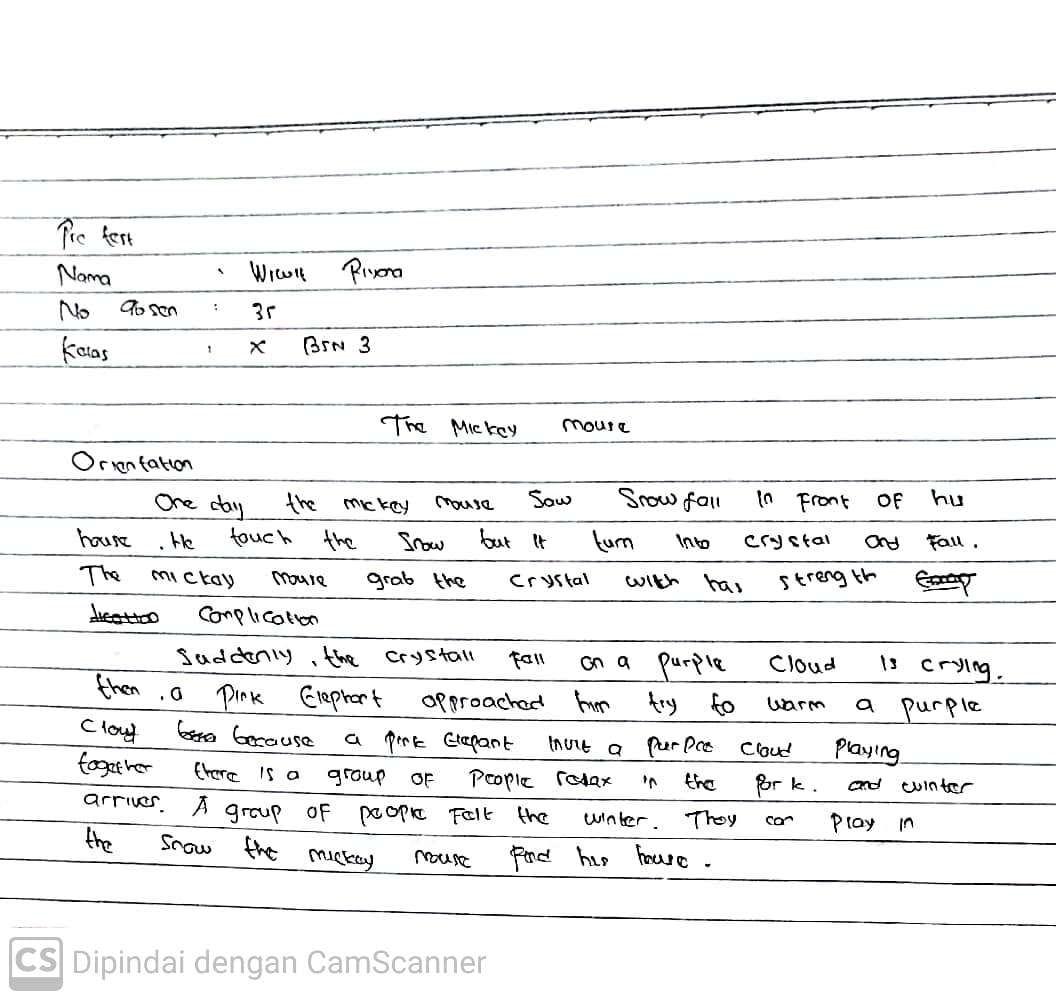 Pre test
Nama : Wiwit Riyana
No absen : 35
Kelas : X BSN 3
The Mickey mouse
Orientation
One day the mickey mouse saw Snow fall in front of his
house . He touch the Snow but it turn into crystal and fall .
The mickay mouse grab the crystal with has strength
Complication
Suddenly , the crystall fall on a purple cloud is crying .
then , a pink Elephant approached him try to warm a purple
cloud because a pink Elepant invite a purple cloud playing
together there is a group of people relax in the park . and winter
arrives . A group of people felt the winter . They can play in
the snow the mickay mouse find his house .
CS Dipindai dengan CamScanner